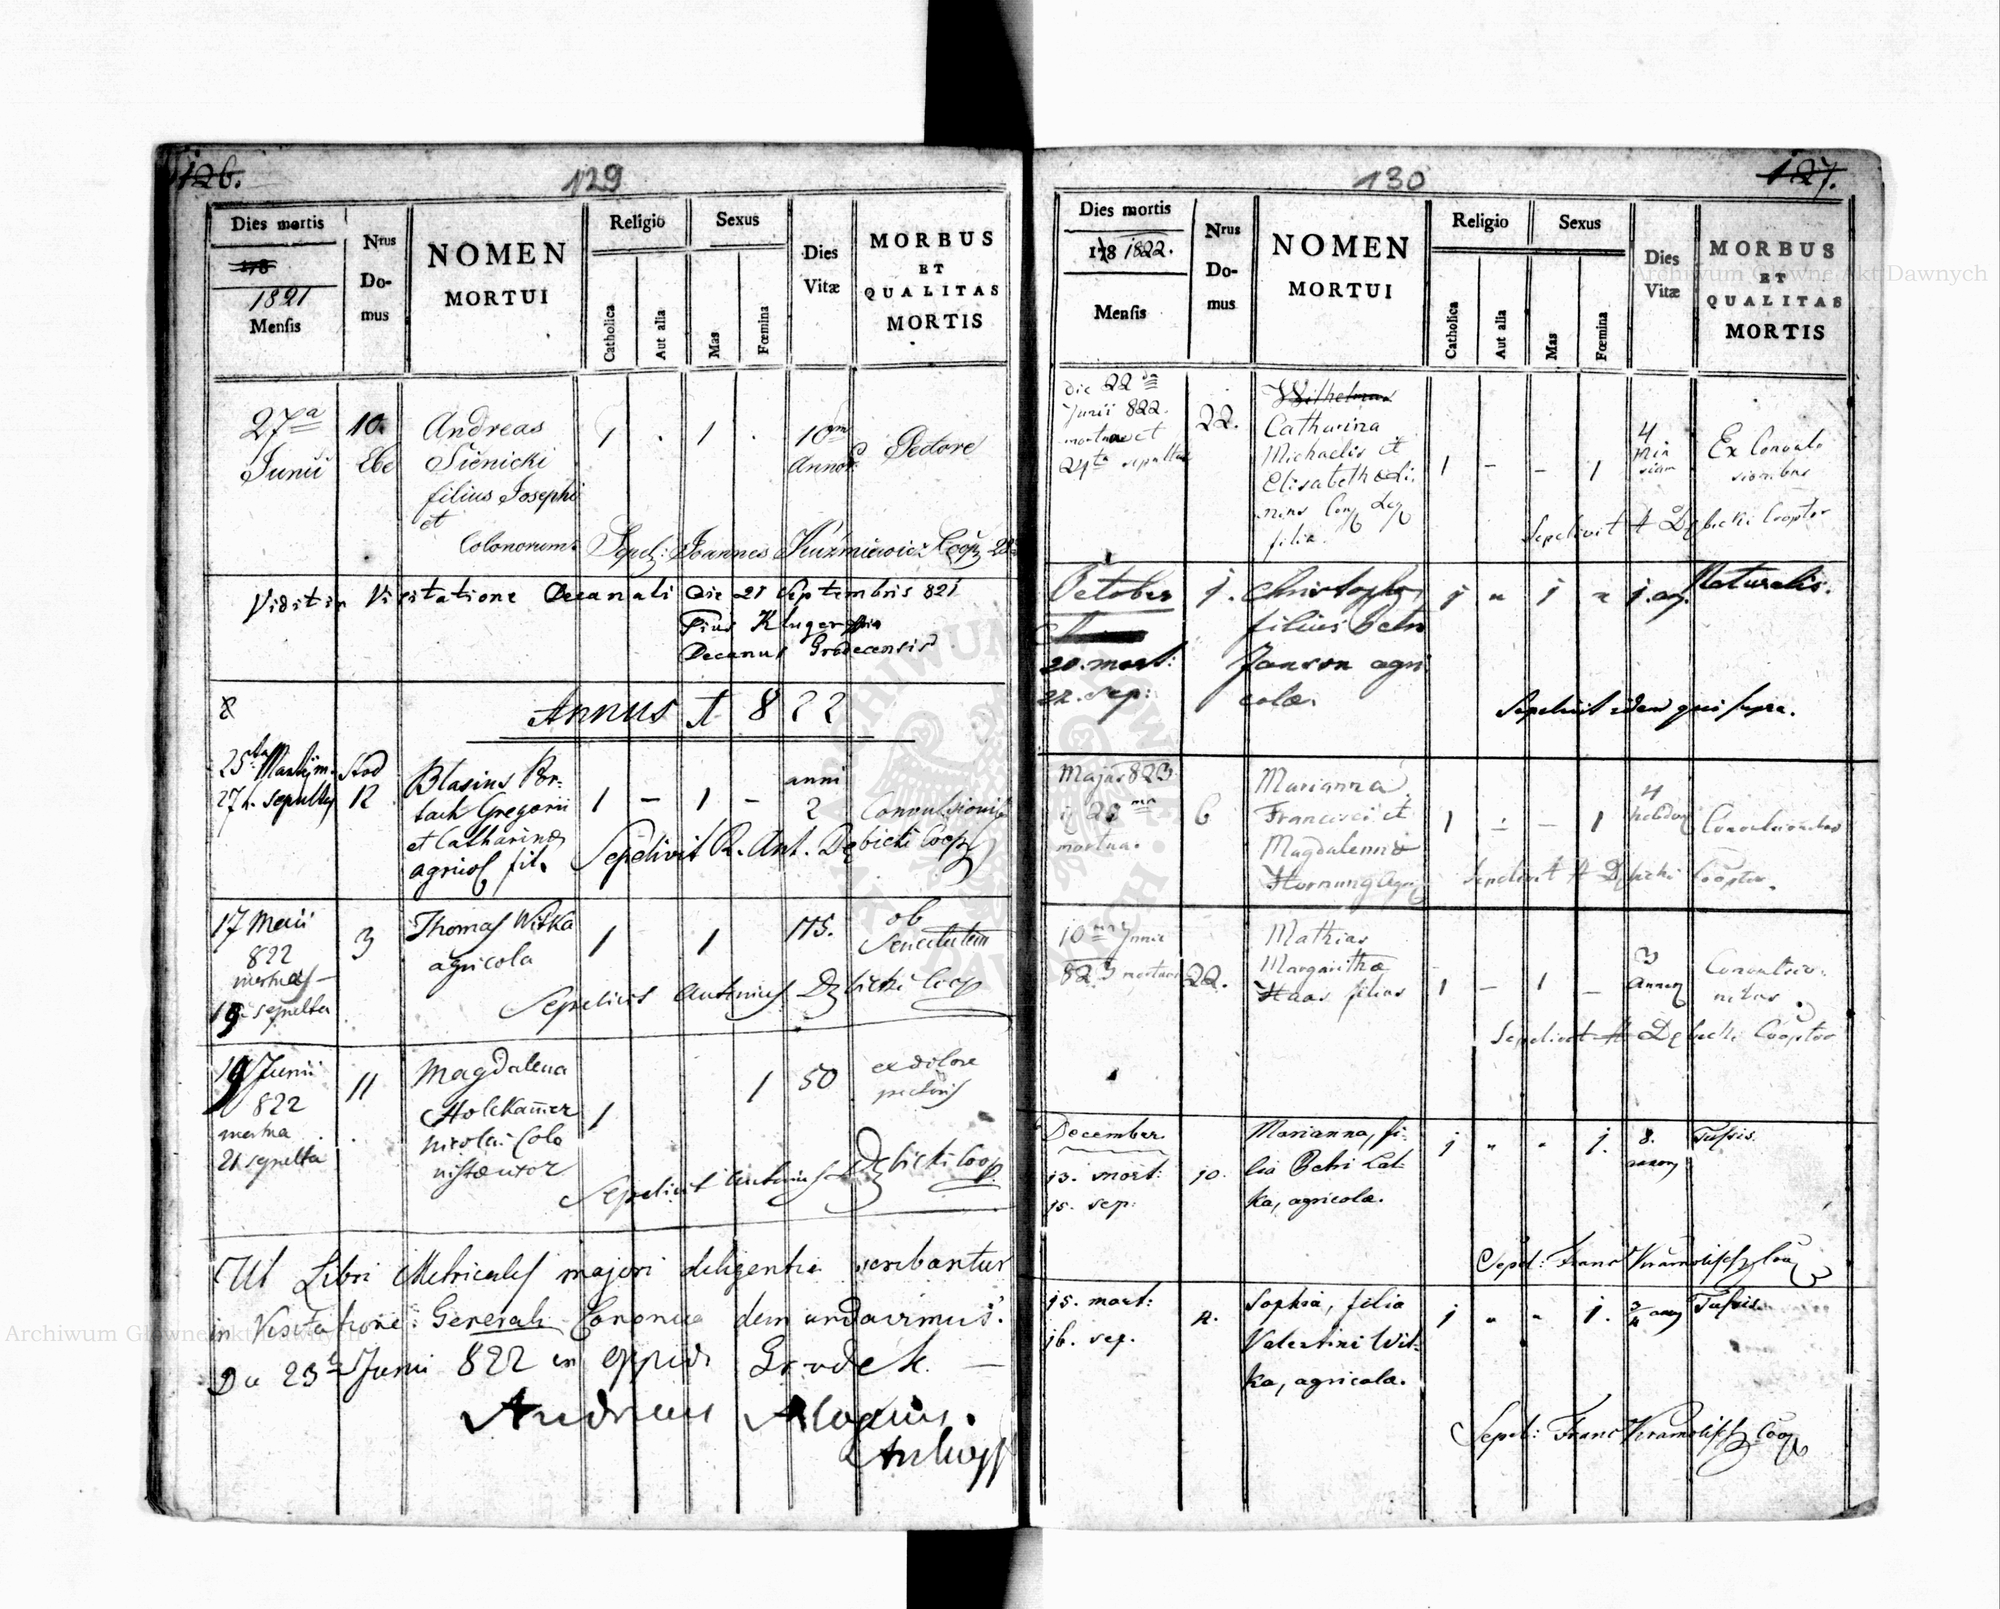 126.
129
Dies mortis
178
1821
Mensis
Nrus
Do-
mus
NOMEN
MORTUI
Religio
Catholica
Aut alia
Sexus
Mas
Fœmina
Dies
Vitæ
MORBUS
ET
QUALITAS
MORTIS
27a
Junii
10.
Andreas
Sienicki
filius Josephi
et
Colonorum.
1 . 1 .
10m
Annor
Pectore
Sepel: Joannes Kuźmiewicz Coop
Vidit in Visitatione Decanali die 21 Septembris 821
Pius Kluger
Decanus Grodecensis
Annus 1822
25ta Martij m.
27 h. sepultus
12
Blasius
Gregorii
et Catharinæ
agricol fil.
1 - 1 -
anni
2
Convulsionis
Sepelivit R. Ant. Dębicki Coop
17 Maii
822
mortuus
19 sepultus
3
Thomas Witka
agricola
1 1
75.
ob
Senectutem
Sepelivit Antonius Dębicki Coop
19 Junii
822
mortua
21 sepulta
11
Magdalena
Holtkamer
Nicolai Colo
nistæ uxor
1 1
50
ex dolore
pectoris
Sepelivit Antonius Dębicki Coop.
Ut Libri Metricales majori diligentia scribantur
in Visitatione Generali Canonica demandavimus.
Die 23a Junii 822 in oppido Grodek.
Andreas Aloysius.
130
127.
Dies mortis
178 1822.
Mensis
Nrus
Do-
mus
NOMEN
MORTUI
Religio
Catholica
Aut alia
Sexus
Mas
Fœmina
Dies
Vitæ
MORBUS
ET
QUALITAS
MORTIS
die 22da
Junii 822.
mortua et
24ta sepulta
22.
Catharina
Michaelis et
Elisabethæ
filia.
1 - - 1
4
Men
sium
Ex Convul
sionibus
Sepelivit A Dębicki Cooptor
October
20. mort:
22. sep:
j.
Christophor
filius Petri
Janson agri
colæ.
j " j "
j. an.
Naturalis.
Sepelivit idem qui supra.
Majus 823
mortua.
6
Marianna
Francisci et
Magdalennæ
Hornung
1 - - 1
4
hebdom
Convulsionibus
Sepelivit A Dębicki Cooptor.
10ma Junii
823 mortuus
22.
Mathias
Margarithæ
Haas filius
1 - 1 -
3
annor
Convulsio-
nibus
Sepelivit A Dębicki Cooptor
December
13. mort:
15. sep:
10.
Marianna, fi-
lia Petri Lat-
ka, agricolæ.
j " " j.
8.
Tussis.
Sepel: Franc Kramolisch Coo
15. mort:
16. sep.
Sophia, filia
Valentini Wit-
ka, agricolæ.
j " " j.
3/4
Tussis.
Sepel: Franc Kramolisch Coop
Archiwum Główne Akt Dawnych
Archiwum Główne Akt Dawnych
ARCHIWUM GŁÓWNE AKT DAWNYCH